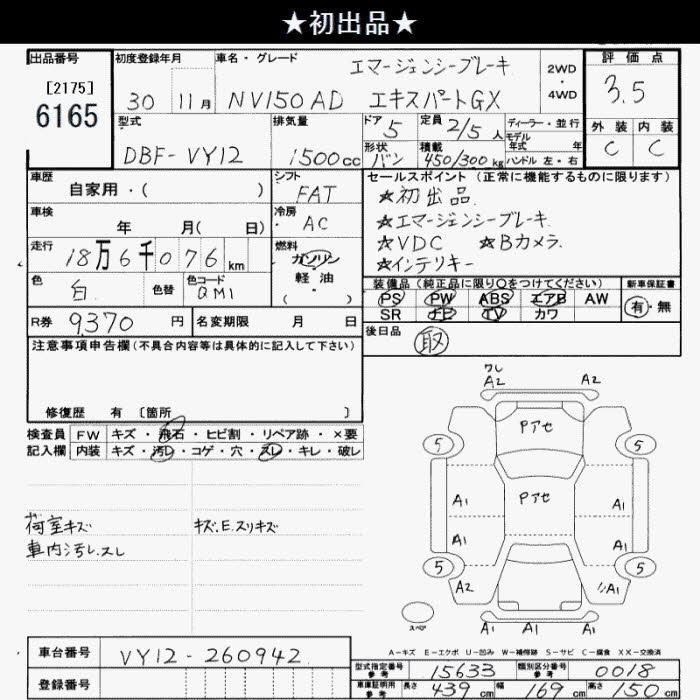 ★初出品★
出品番号
[2175]
6165
初度登録年月
30 11月
車名・グレード
エマージェンシーブレーキ
NV150AD エキスパートGX
2WD
・
4WD
評価点
3.5
外装 内装
C C
型式
DBF-VY12
排気量
1500cc
ドア
5
定員
2/5人
ディーラー・並行
モデル
年式 年
形状
バン
積載
450/300kg
ハンドル 左・右
車歴
自家用・( )
シフト
FAT
車検
年 月( 日)
冷房
AC
走行
18万6千076km
燃料
ガソリン
・
軽油
・
( )
色
白
色替
色コード
QM1
R券 9370円
名変期限 月 日
セールスポイント(正常に機能するものに限ります)
★初出品
★エマージェンシーブレーキ
★VDC ★Bカメラ
★インテリキー
装備品(純正品に限り○をつけてください)
PS PW ABS エアB AW
SR ナビ TV カワ
新車保証書
有・無
後日品
取
注意事項申告欄(不具合内容等は具体的に記入して下さい)
修復歴 有 〔箇所 〕
検査員
記入欄
FW キズ・飛石・ヒビ割・リペア跡・×要
内装 キズ・汚レ・コゲ・穴・スレ・キレ・破レ
荷室キズ
車内汚レ、スレ
キズ.E.スリキズ
ワレ
A2 A2
Pアセ
5 5
Pアセ
A1 A1
A1 A1
5 5
A2 リA1
スペア
A1 A1 A1
A−キズ E−エクボ U−凹み W−補修跡 S−サビ C−腐食 XX−交換済
車台番号 VY12-260942
登録番号
型式指定番号
参考
15633
類別区分番号
参考
0018
車庫証明用
参考
長さ 439cm 幅 169cm 高さ 150cm